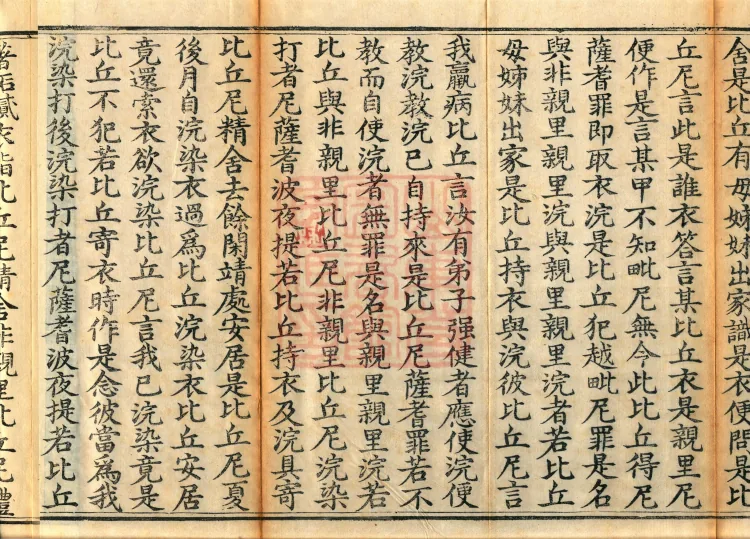 舍是比丘有母姊妹出家識是衣便問是比
丘尼言此是誰衣答言某比丘衣是親里尼
便作是言某甲不知毗尼無令此比丘得尼
薩耆罪即取衣浣是比丘犯越毗尼罪是名
與非親里浣與非親里親里浣者若比丘
母姊妹出家是比丘持衣與浣彼比丘尼言
我羸病比丘言汝有弟子强健者應使浣便
教浣教浣已自持來是比丘尼薩耆罪若不
教而自使浣者無罪是名與親里親里浣若
比丘與非親里比丘尼非親里比丘尼浣染
打者尼薩耆波夜提若比丘持衣及浣具寄
比丘尼精舍去餘閑靖處安居是比丘尼夏
後月自浣染衣過爲比丘浣染衣比丘安居
竟還索衣欲浣染比丘尼言我已浣染竟是
比丘不犯若比丘寄衣時作是念彼當爲我
浣染打後浣染打者尼薩耆波夜提若比丘
著垢膩衣詣比丘尼精舍非親里比丘尼禮